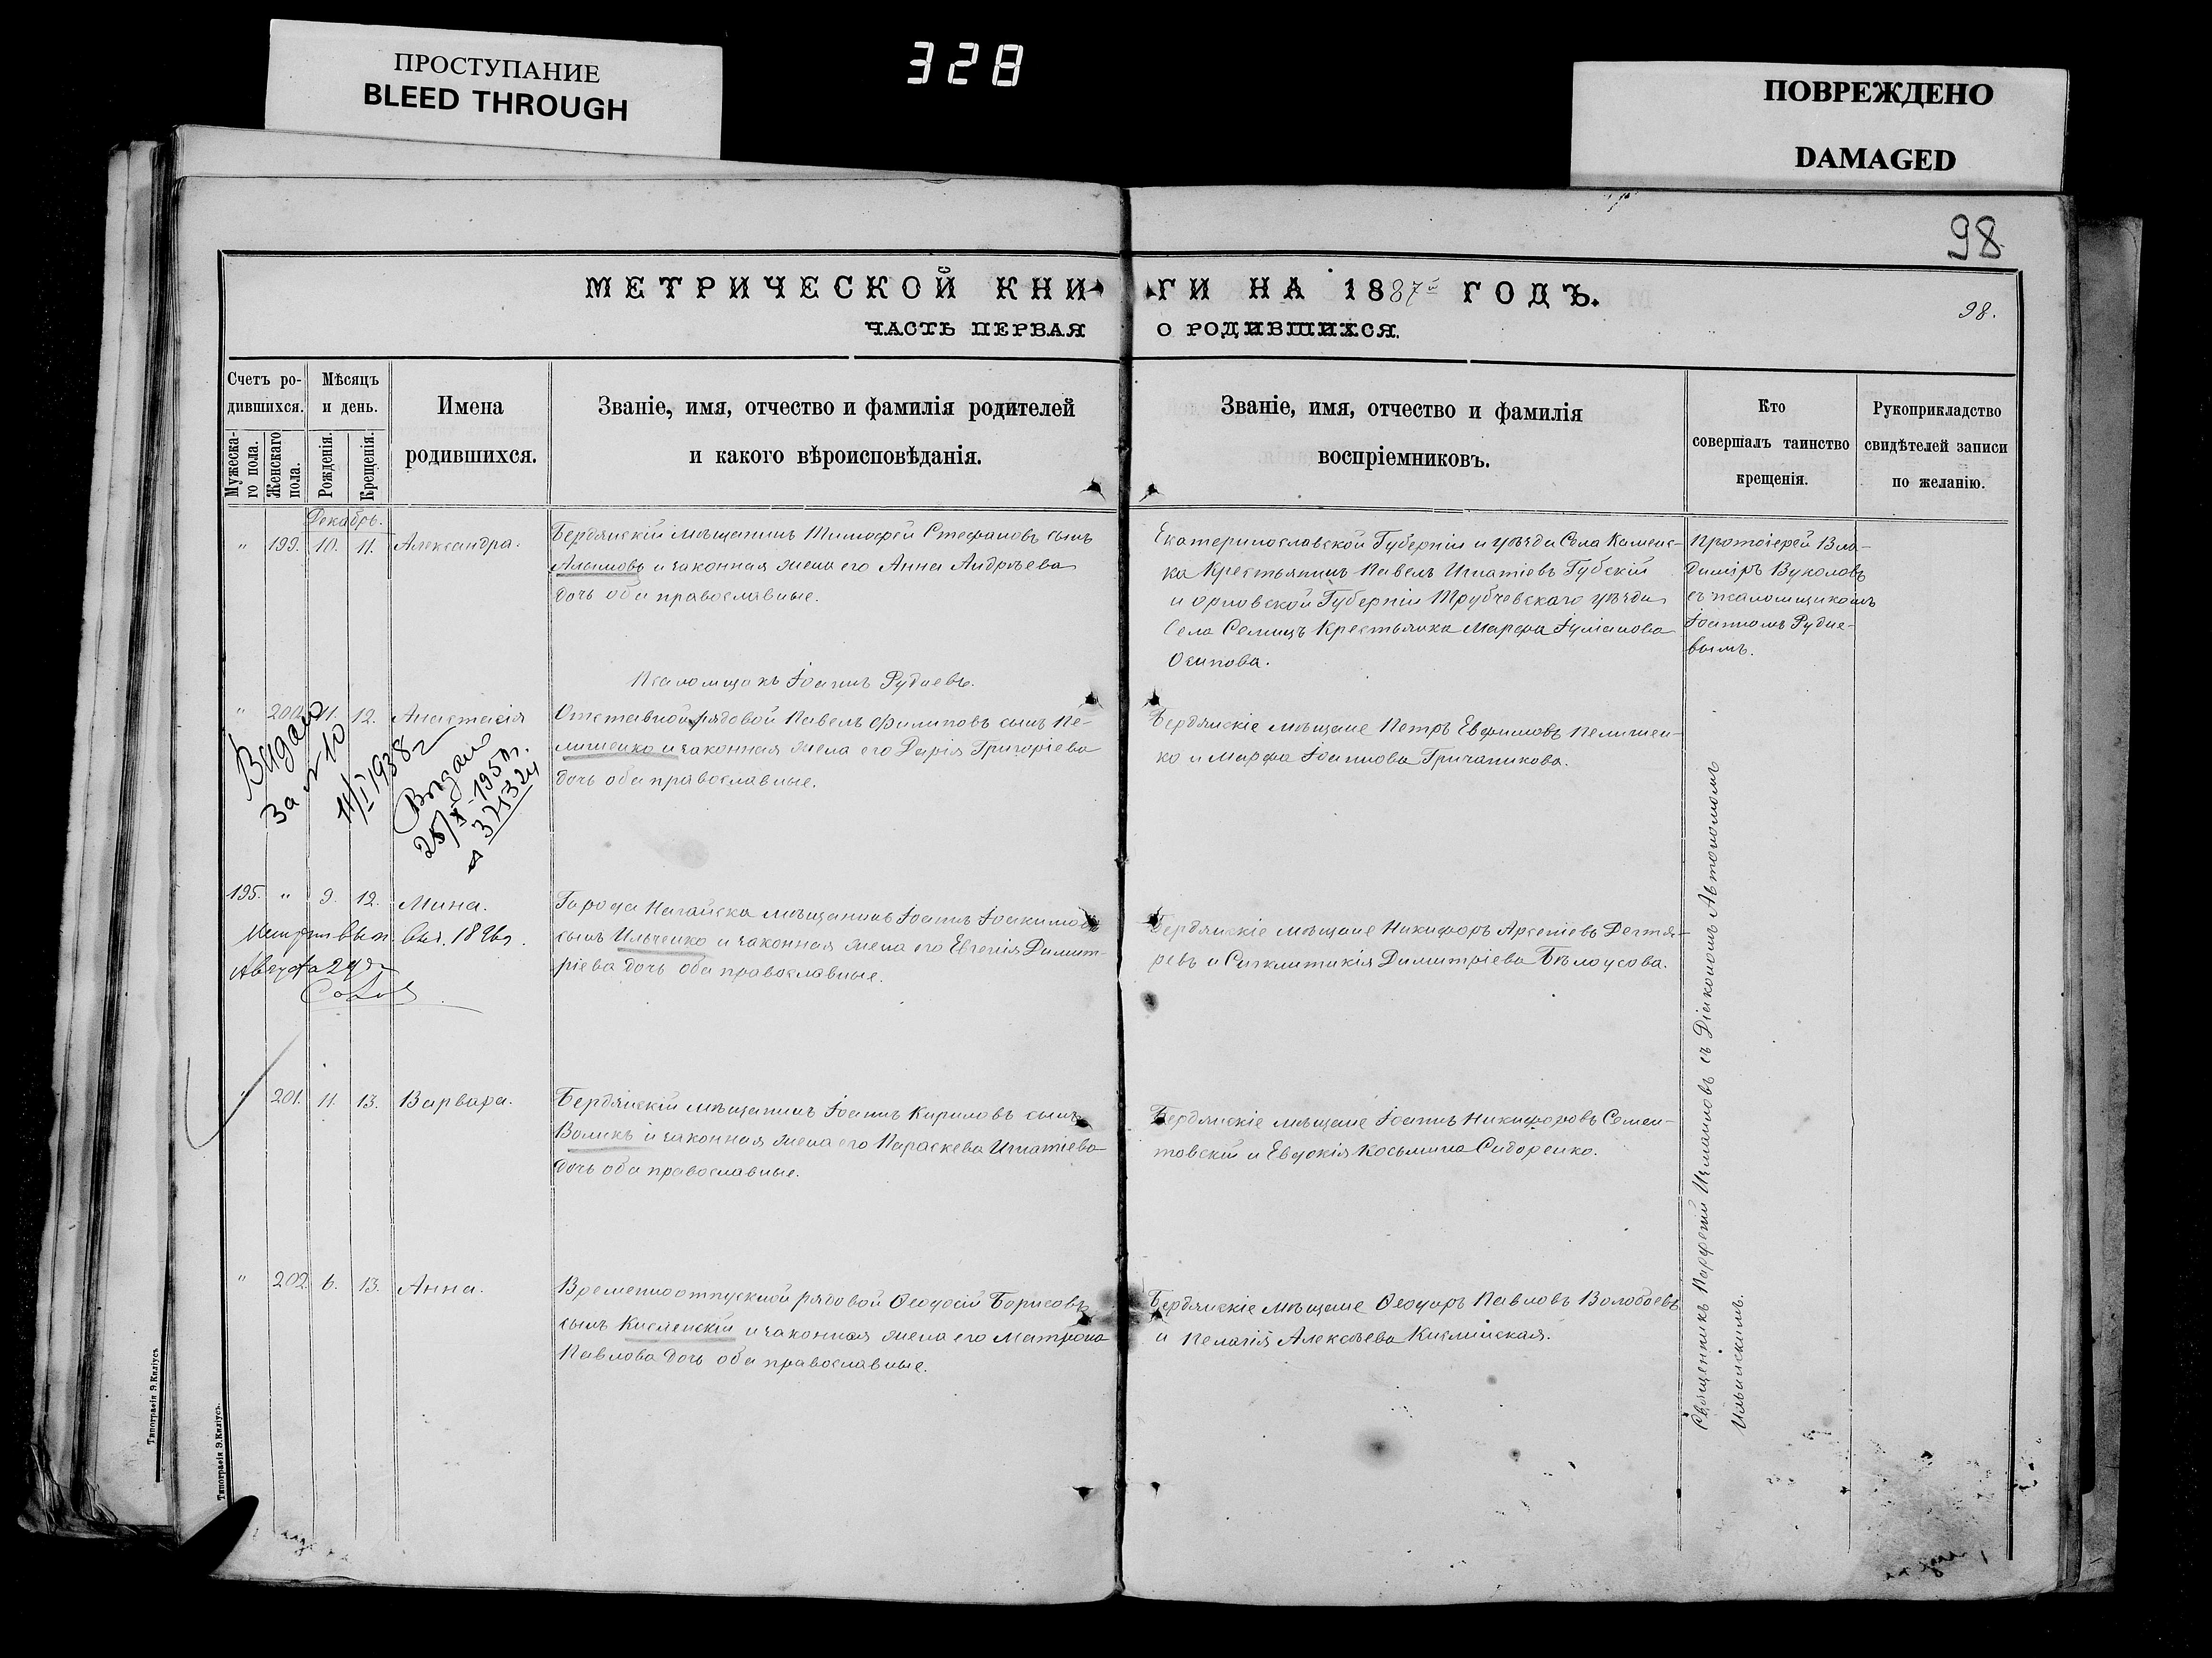 ПРОСТУПАНИЕ
BLEED THROUGH
328
ПОВРЕЖДЕНО
DAMAGED
98
МЕТРИЧЕСКОЙ КНИГИ НА 1887й ГОДЪ.
98.
ЧАСТЬ ПЕРВАЯ О РОДИВШИХСЯ.
Счетъ ро-
дившихся.
Мужеска-
го пола.
Женскаго
пола.
Мѣсяцъ
и день.
Рожденія.
Крещенія.
Имена
родившихся.
Званіе, имя, отчество и фамилія родителей
и какого вѣроисповѣданія.
Званіе, имя, отчество и фамилія
воспріемниковъ.
Кто
совершалъ таинство
крещенія.
Рукоприкладство
свидѣтелей записи
по желанію.
Декабрь.
" 199. 10. 11. Александра.
Бердянскій мѣщанинъ Тимофей Стефановъ сынъ
Алимовъ и законная жена его Анна Андреева
дочь оба православные.
Екатеринославской Губерніи и уѣзда Села Каменс-
ка Крестьянинъ Павелъ Игнатіевъ Губскій
и орловской Губерніи Трубчевскаго уѣзда
Села Селищъ Крестьянка Марфа
Осипова.
Протоіерей Вла-
димиръ Вуколовъ
съ псаломщикомъ
Іоанномъ Рудне-
вымъ.
Псаломщикъ Іоаннъ Рудневъ.
" 200. 11. 12. Анастасія
Отставной рядовой Павелъ Филиповъ сынъ Пе-
лишенко и законная жена его Дарія Григоріева
дочь оба православные.
Бердянскіе мѣщане Петръ Евфимовъ Пелишен-
ко и Марфа Іоаннова Гричаникова.
Видано
За № 10
11/I 1938
Видано
25/X-195
195. " 9. 12. Мина.
Города Нагайска мѣщанинъ Іоаннъ Іоакимовъ
сынъ Ильченко и законная жена его Евгенія Димит-
ріева дочь оба православные.
Бердянскіе мѣщане Никифоръ Арсеніевъ Дегтя-
ревъ и Сигклитикія Димитріева Бѣлоусова.
Августа 24
" 201. 11. 13. Варвара.
Бердянскій мѣщанинъ Іоаннъ Кириловъ сынъ
Воликъ и законная жена его Параскева Игнатіева
дочь оба православные.
Бердянскіе мѣщане Іоаннъ Никифоровъ Семен-
товскій и Евдокія Косьмина Сидоренко.
" 202. 6. 13. Анна.
Временноотпускной рядовой Ѳеодосій Борисовъ
сынъ Кисленскій и законная жена его Матрона
Павлова дочь оба православные.
Бердянскіе мѣщане Ѳеодоръ Павловъ Волобоевъ
и Пелагія Алексѣева Кислинская.
Священникъ Парфеній Игнатовъ съ Діакономъ Автономомъ
Ильинскимъ.
Типографія Э.Киліусъ
Типографія Э.Киліусъ.